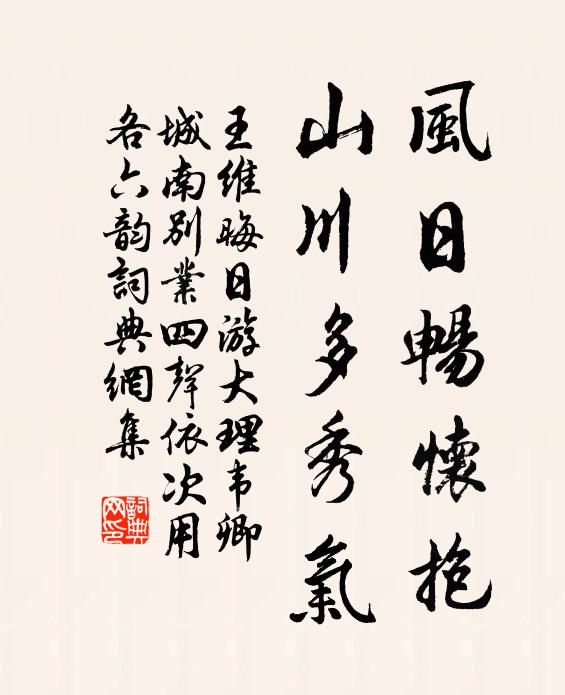 風日暢懷抱
山川多秀氣
王維晦日游大理韦卿
城南別業四聲依次用
各六韵詞典網集
詞典网印